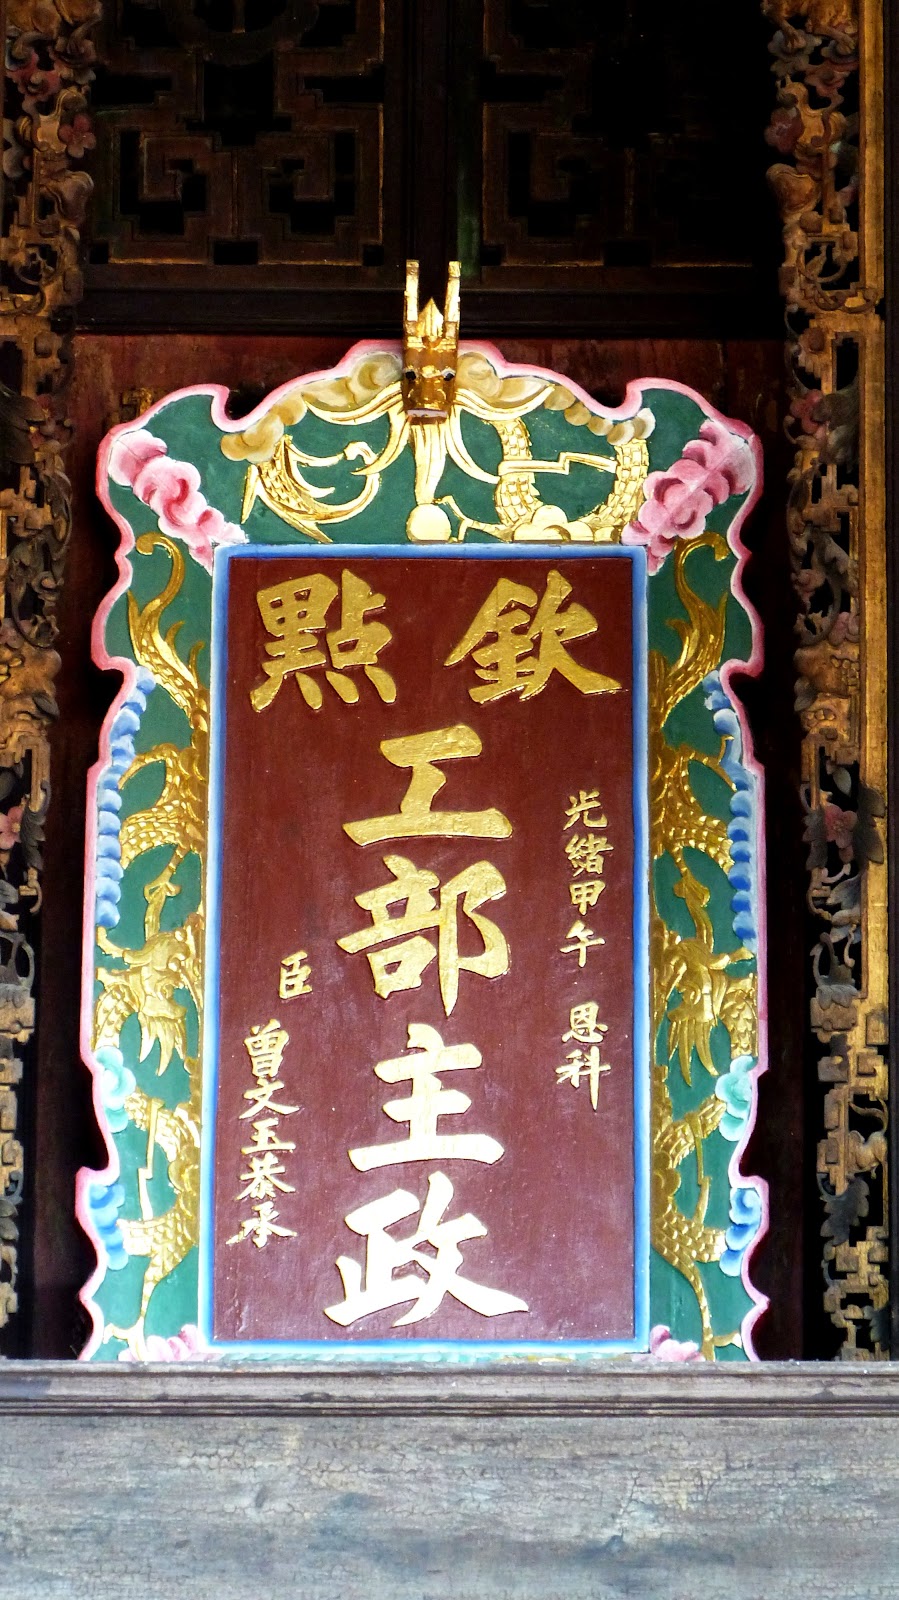 欽點
工部主政
光緒甲午 恩科
臣
曾文玉恭承